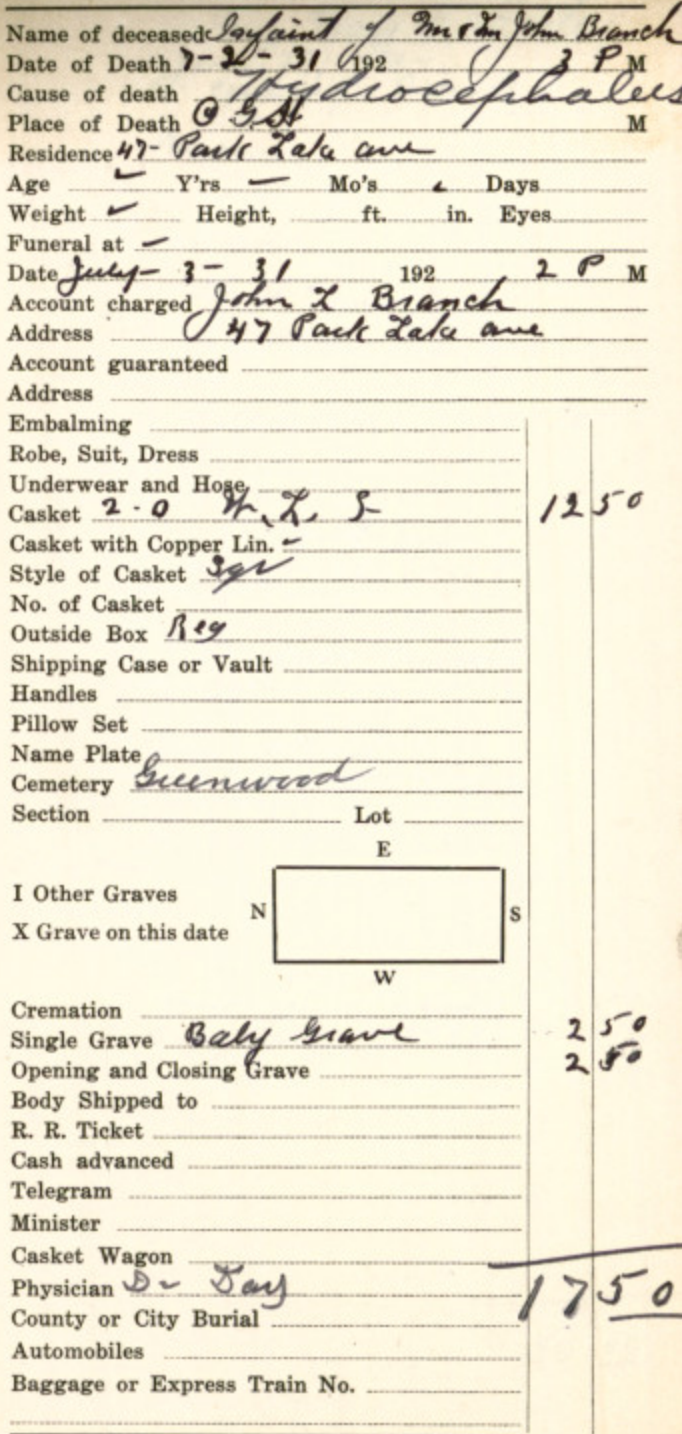 Name of deceased Infaint of Mr & Mr John Branch
Date of Death 7-2-31 192 3 P M
Cause of death Hydrocephalus
Place of Death O G H M
Residence 47- Park Lake ave
Age Y'rs — Mo's Days
Weight Height, ft. in. Eyes
Funeral at —
Date July- 3-31 192 2 P M
Account charged John L Branch
Address 47 Park Lake ave
Account guaranteed
Address
Embalming
Robe, Suit, Dress
Underwear and Hose
Casket 2-0 W. L. S 12 50
Casket with Copper Lin. -
Style of Casket Sqr
No. of Casket
Outside Box Reg
Shipping Case or Vault
Handles
Pillow Set
Name Plate
Cemetery Greenwood
Section Lot
E
I Other Graves
N S
X Grave on this date
W
Cremation
Single Grave Baby Grave 2 50
Opening and Closing Grave 2 50
Body Shipped to
R. R. Ticket
Cash advanced
Telegram
Minister
Casket Wagon
Physician Dr Day 17 50
County or City Burial
Automobiles
Baggage or Express Train No.